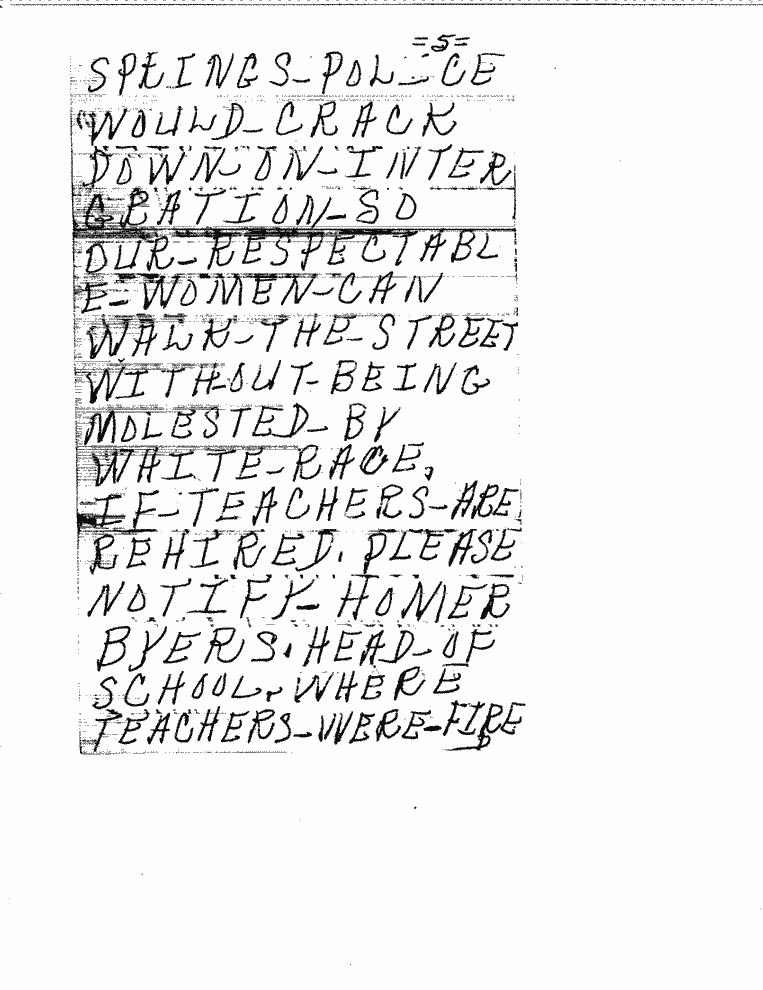 =5=
SPRINGS-POLICE
WOULD-CRACK
DOWN-ON-INTER
GRATION-SO
OUR-RESPECTABL
E-WOMEN-CAN
WALK-THE-STREET
WITHOUT-BEING
MOLESTED-BY
WHITE-RACE,
IF-TEACHERS-ARE
REHIRED. PLEASE
NOTIFY-HOMER
BYERS. HEAD-OF
SCHOOL, WHERE
TEACHERS-WERE-FIRE
D